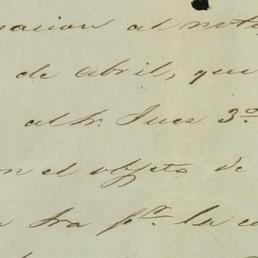 nacion al not
de abril, que
al Sr. Juez 3º
n el objeto de
a pª la co